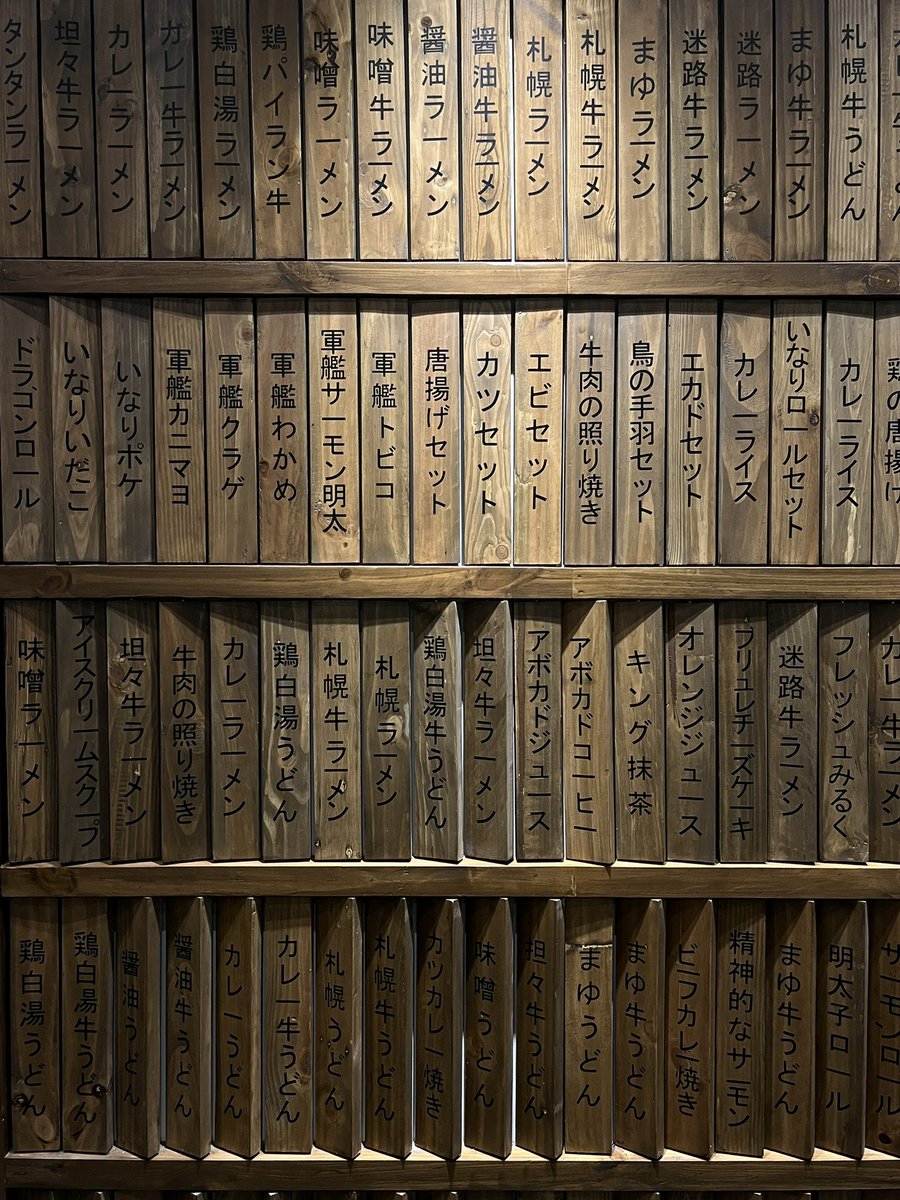 タンタンラーメン
坦々牛ラーメン
カレーラーメン
カレー牛ラーメン
鶏白湯ラーメン
鶏パイラン牛
味噌ラーメン
味噌牛ラーメン
醤油ラーメン
醤油牛ラーメン
札幌ラーメン
札幌牛ラーメン
まゆラーメン
迷路牛ラーメン
迷路ラーメン
まゆ牛ラーメン
札幌牛うどん
ドラゴンロール
いなりいだこ
いなりポケ
軍艦カニマヨ
軍艦クラゲ
軍艦わかめ
軍艦サーモン明太
軍艦トビコ
唐揚げセット
カツセット
エビセット
牛肉の照り焼き
鳥の手羽セット
エカドセット
カレーライス
いなりロールセット
カレーライス
鶏の唐揚げ
味噌ラーメン
アイスクリームスクープ
坦々牛ラーメン
牛肉の照り焼き
カレーラーメン
鶏白湯うどん
札幌牛ラーメン
札幌ラーメン
鶏白湯牛うどん
坦々牛ラーメン
アボカドジュース
アボカドコーヒー
キング抹茶
オレンジジュース
ブリュレチーズケーキ
迷路牛ラーメン
フレッシュみるく
カレー牛ラーメン
鶏白湯うどん
鶏白湯牛うどん
醤油うどん
醤油牛うどん
カレーうどん
カレー牛うどん
札幌うどん
札幌牛うどん
カツカレー焼き
味噌うどん
担々牛うどん
まゆうどん
まゆ牛うどん
ビラカレー焼き
精神的なサーモン
まゆ牛うどん
明太子ロール
サーモンロール